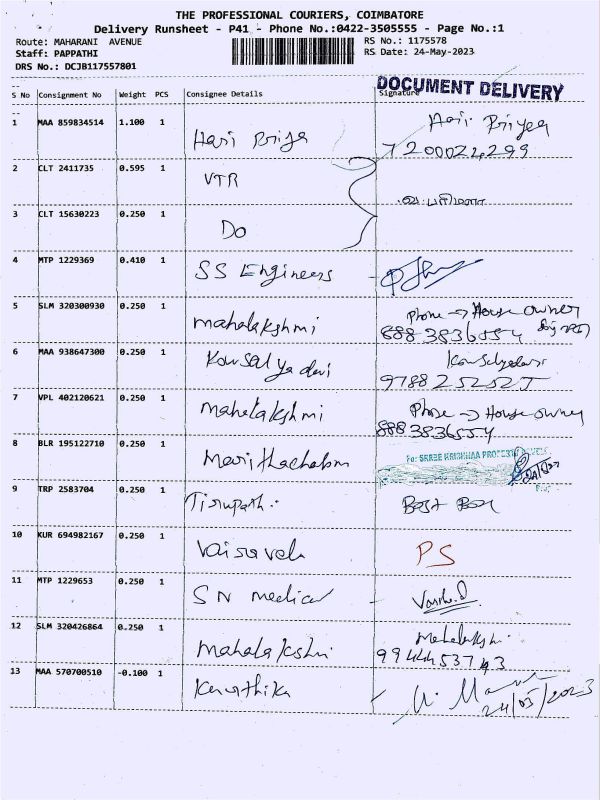 THE PROFESSIONAL COURIERS, COIMBATORE
Delivery Runsheet - P41 - Phone No.:0422-3505555 - Page No.:1
Route: MAHARANI AVENUE
RS No.: 1175578
Staff: PAPPATHI
RS Date: 24-May-2023
DRS No.: DCJB117557801
DOCUMENT DELIVERY
S No Consignment No Weight PCS Consignee Details Signature
1 MAA 859834514 1.100 1 Hari Priya Hari Priya
7200022,299
2 CLT 2411735 0.595 1 VTR
3 CLT 15630223 0.250 1 Do
4 MTP 1229369 0.410 1 SS Engineers
5 SLM 320300930 0.250 1 mahalakshmi Phone → House owner
8883836554
6 MAA 938647300 0.250 1 Kousalyadevi
9788252525
7 VPL 402120621 0.250 1 mahalakshmi Phone → House owner
8883836554
8 BLR 195122710 0.250 1 For SREE KRISHNAA
9 TRP 2583704 0.250 1 Tirupathi Best Box
10 KUR 694982167 0.250 1 Vairavel PS
11 MTP 1229653 0.250 1 SN medical
12 SLM 320426864 0.250 1 mahalakshmi Mahalakshmi
9944453743
13 MAA 570700510 -0.100 1 Karthika
24/05/2023